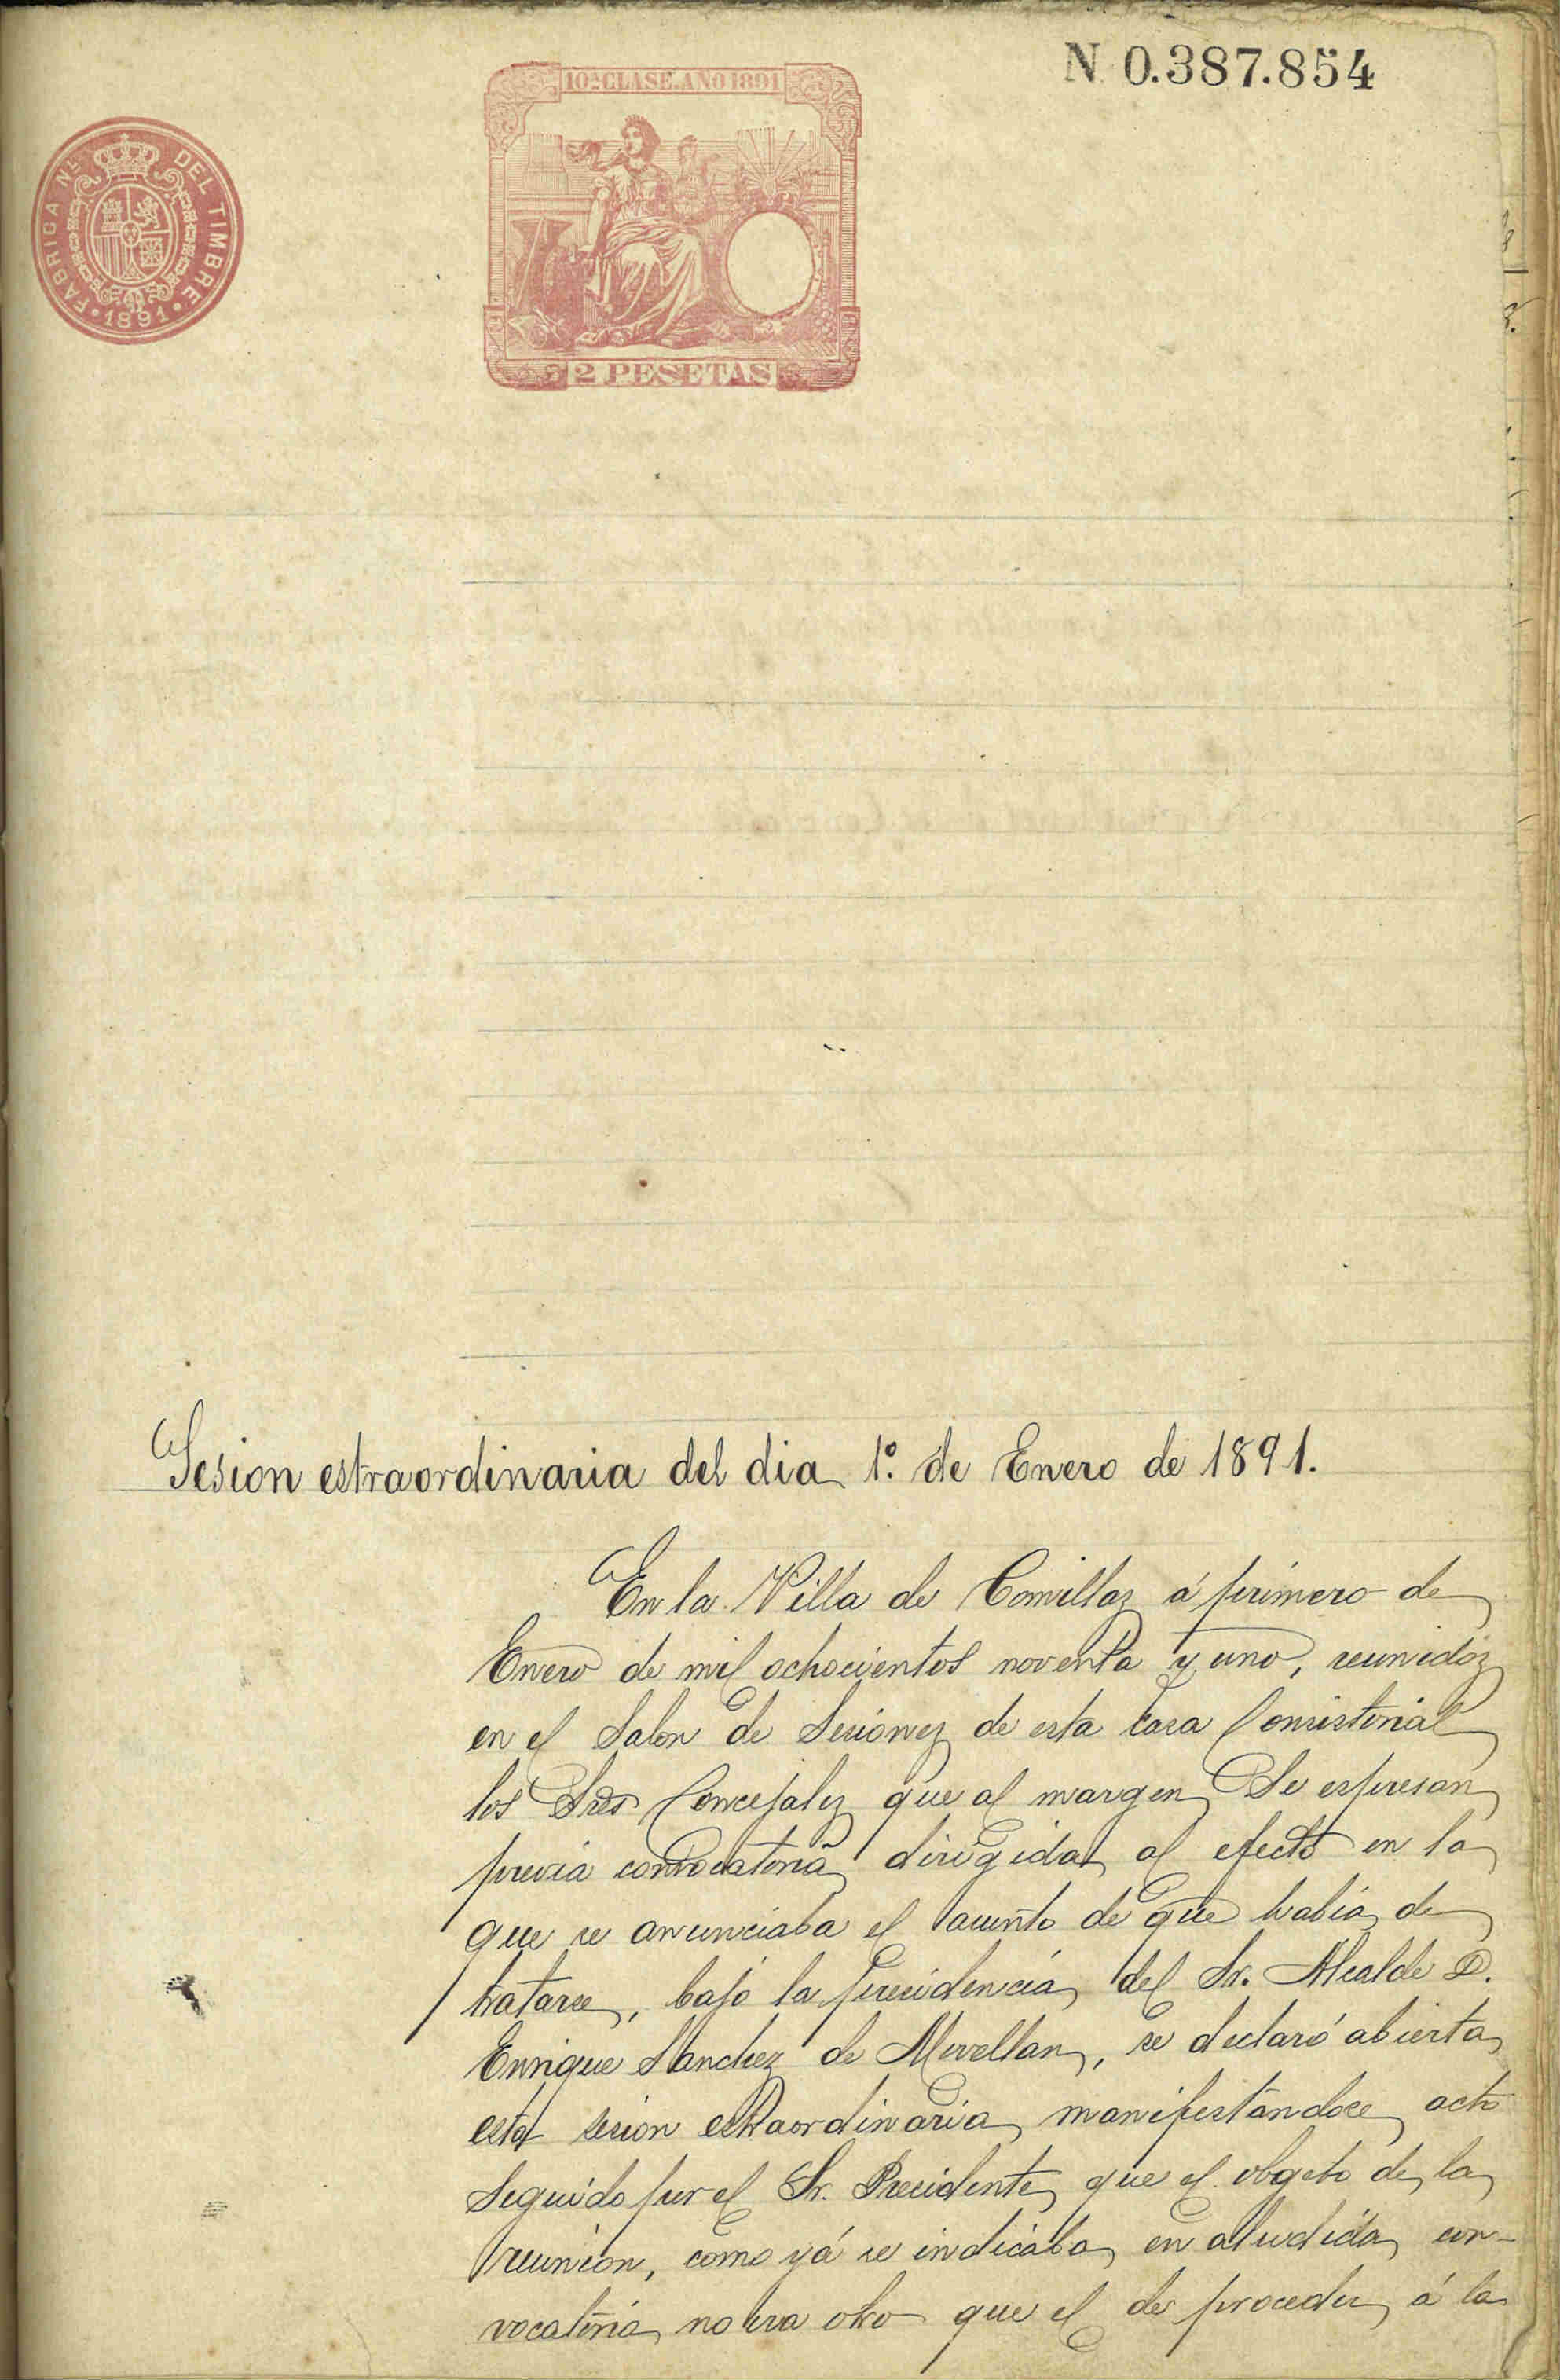 N 0.387.854
10ª CLASE. AÑO 1891
FABRICA NL. DEL TIMBRE
1891
2 PESETAS
Sesion estraordinaria del dia 1º. de Enero de 1891.
En la Villa de Comillas á primero de
Enero de mil ochocientos noventa y uno, reunidos
en el Salon de Sesiones de esta Casa Consistorial
los Sres Concejales que al margen Se espresan
previa convocatoria dirigida al efecto en la
que se anunciaba el asunto de que había de
tratarse, bajo la presidencia del Sr. Alcalde D.
Enrique Sanchez de Movellan, se declaró abierta
esta sesion estraordinaria manifestandose acto
seguido por el Sr. Presidente que el obgeto de la
reunion, como yá se indicaba en aludida con-
vocatoria no era otro que el de proceder á la